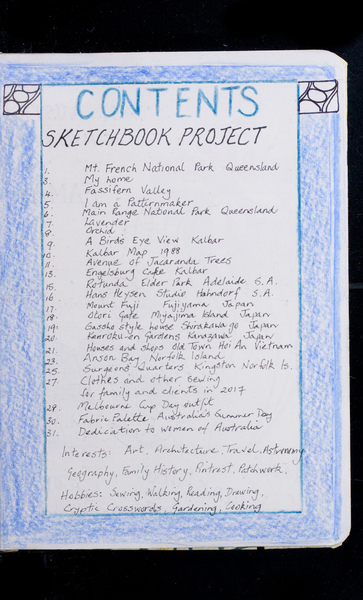 CONTENTS
SKETCHBOOK PROJECT
1. Mt. French National Park Queensland
3. My home
4. Fassifern Valley
5. I am a Patternmaker
6. Main Range National Park Queensland
7. Lavender
8. Orchid
9. A Birds Eye View Kalbar
10. Kalbar Map 1988
11. Avenue of Jacaranda Trees
13. Engelsburg Cafe Kalbar
15. Rotunda Elder Park Adelaide S.A.
16. Hans Heysen Studio Hahndorf S.A.
17. Mount Fuji Fujiyama Japan
18. Otori Gate Miyajima Island Japan
19. Gassho style house Shirakawa go Japan
20. Kenroku-en Gardens Kanazawa Japan
21. Houses and shops Old Town Hoi An Vietnam
23. Anson Bay, Norfolk Island
25. Surgeons Quarters Kingston Norfolk Is.
27. Clothes and other sewing
for family and clients in 2017
28. Melbourne Cup Day outfit
30. Fabric Palette Australia's Summer Day
31. Dedication to women of Australia
Interests: Art, Architecture, Travel, Astronomy
Geography, Family History, Pintrest, Patchwork,
Hobbies: Sewing, Walking, Reading, Drawing,
Cryptic Crosswords, Gardening, Cooking